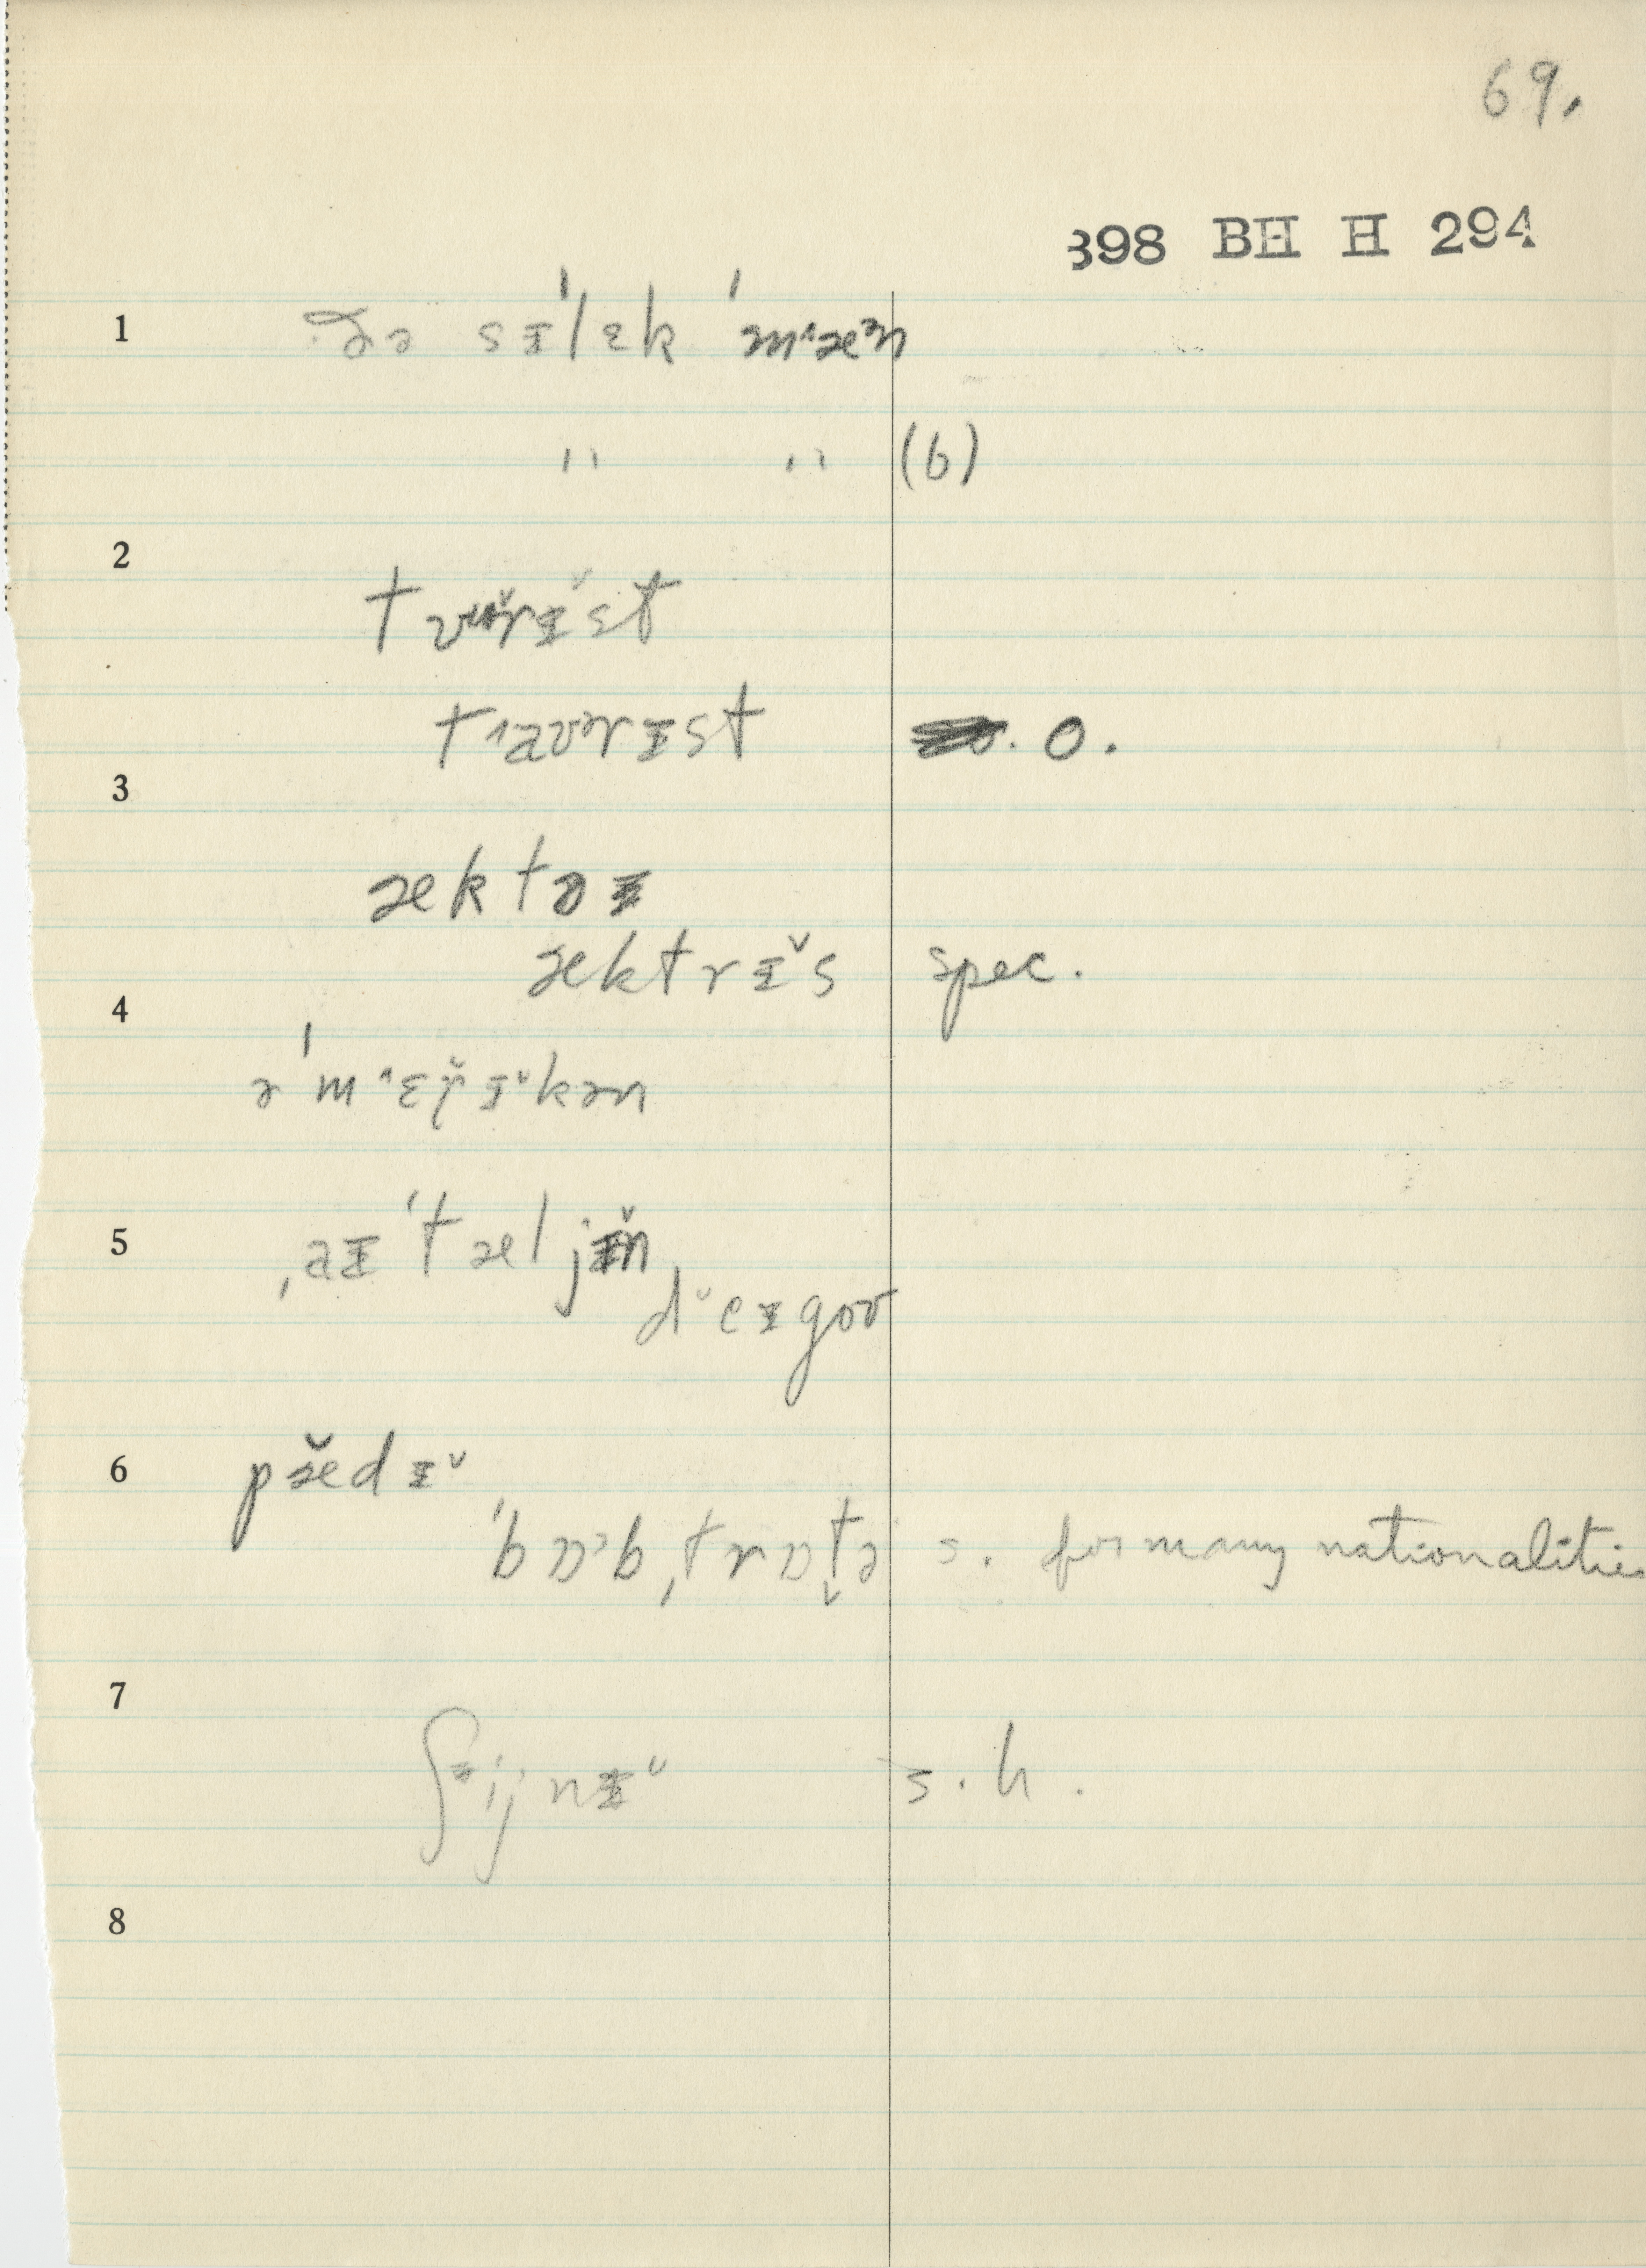 69.
398 BH H 294
1 ðə sɪ'lɛk 'mˈæᵊn
" " (6)
2
tᴜʊ̆rɪ̆st
tˈaʊrɪst O.
3
æktəɪ
æktrɪ̆s spec.
4
ə'mˈɛṛ̌ɪ̆kən
5 ˌaɪ'tæljɪ̆n
dˇeɪgoʊ
6 pæ̆dɪ̆
'bɒᵊbˌtrɒt̬ə s. for many nationalities
7
ʃijnɪ̆ s.h.
8